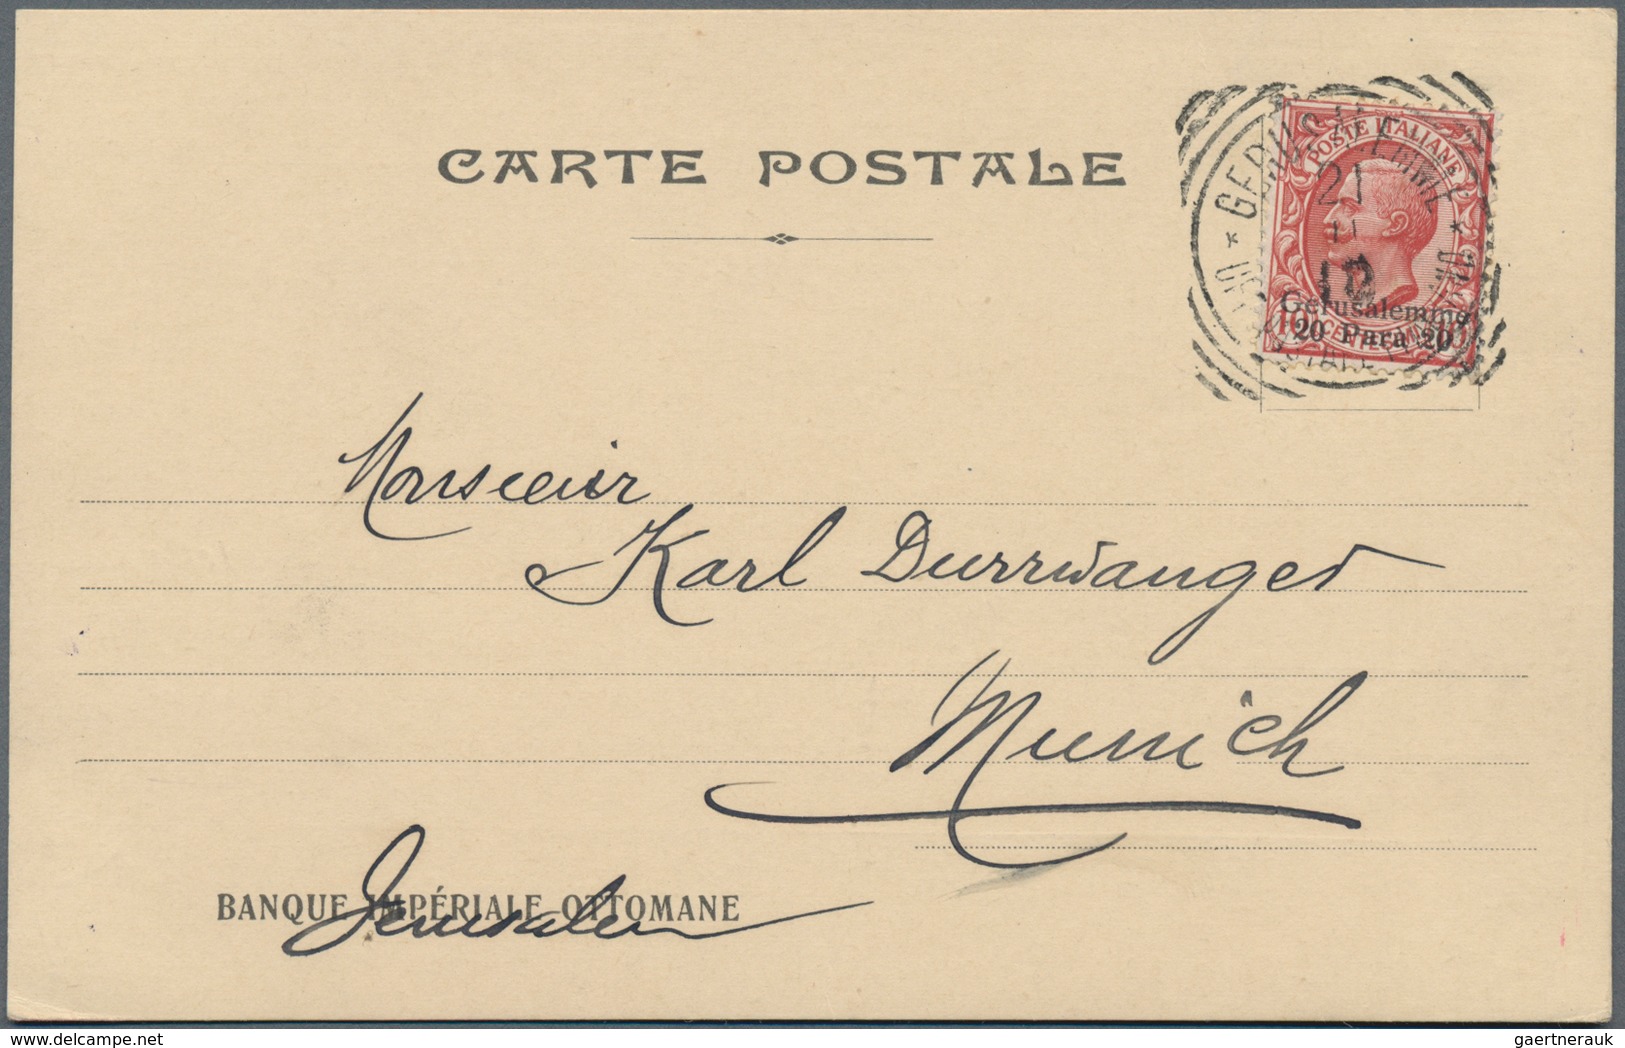 CARTE POSTALE
POSTE ITALIANE
GERUSALEMME
21
10
Gerusalemme
20 Para 20
Monsieur
Karl Durrwanger
Munich
BANQUE IMPÉRIALE OTTOMANE
Jerusalem
delcampe.net
gaertnerauk